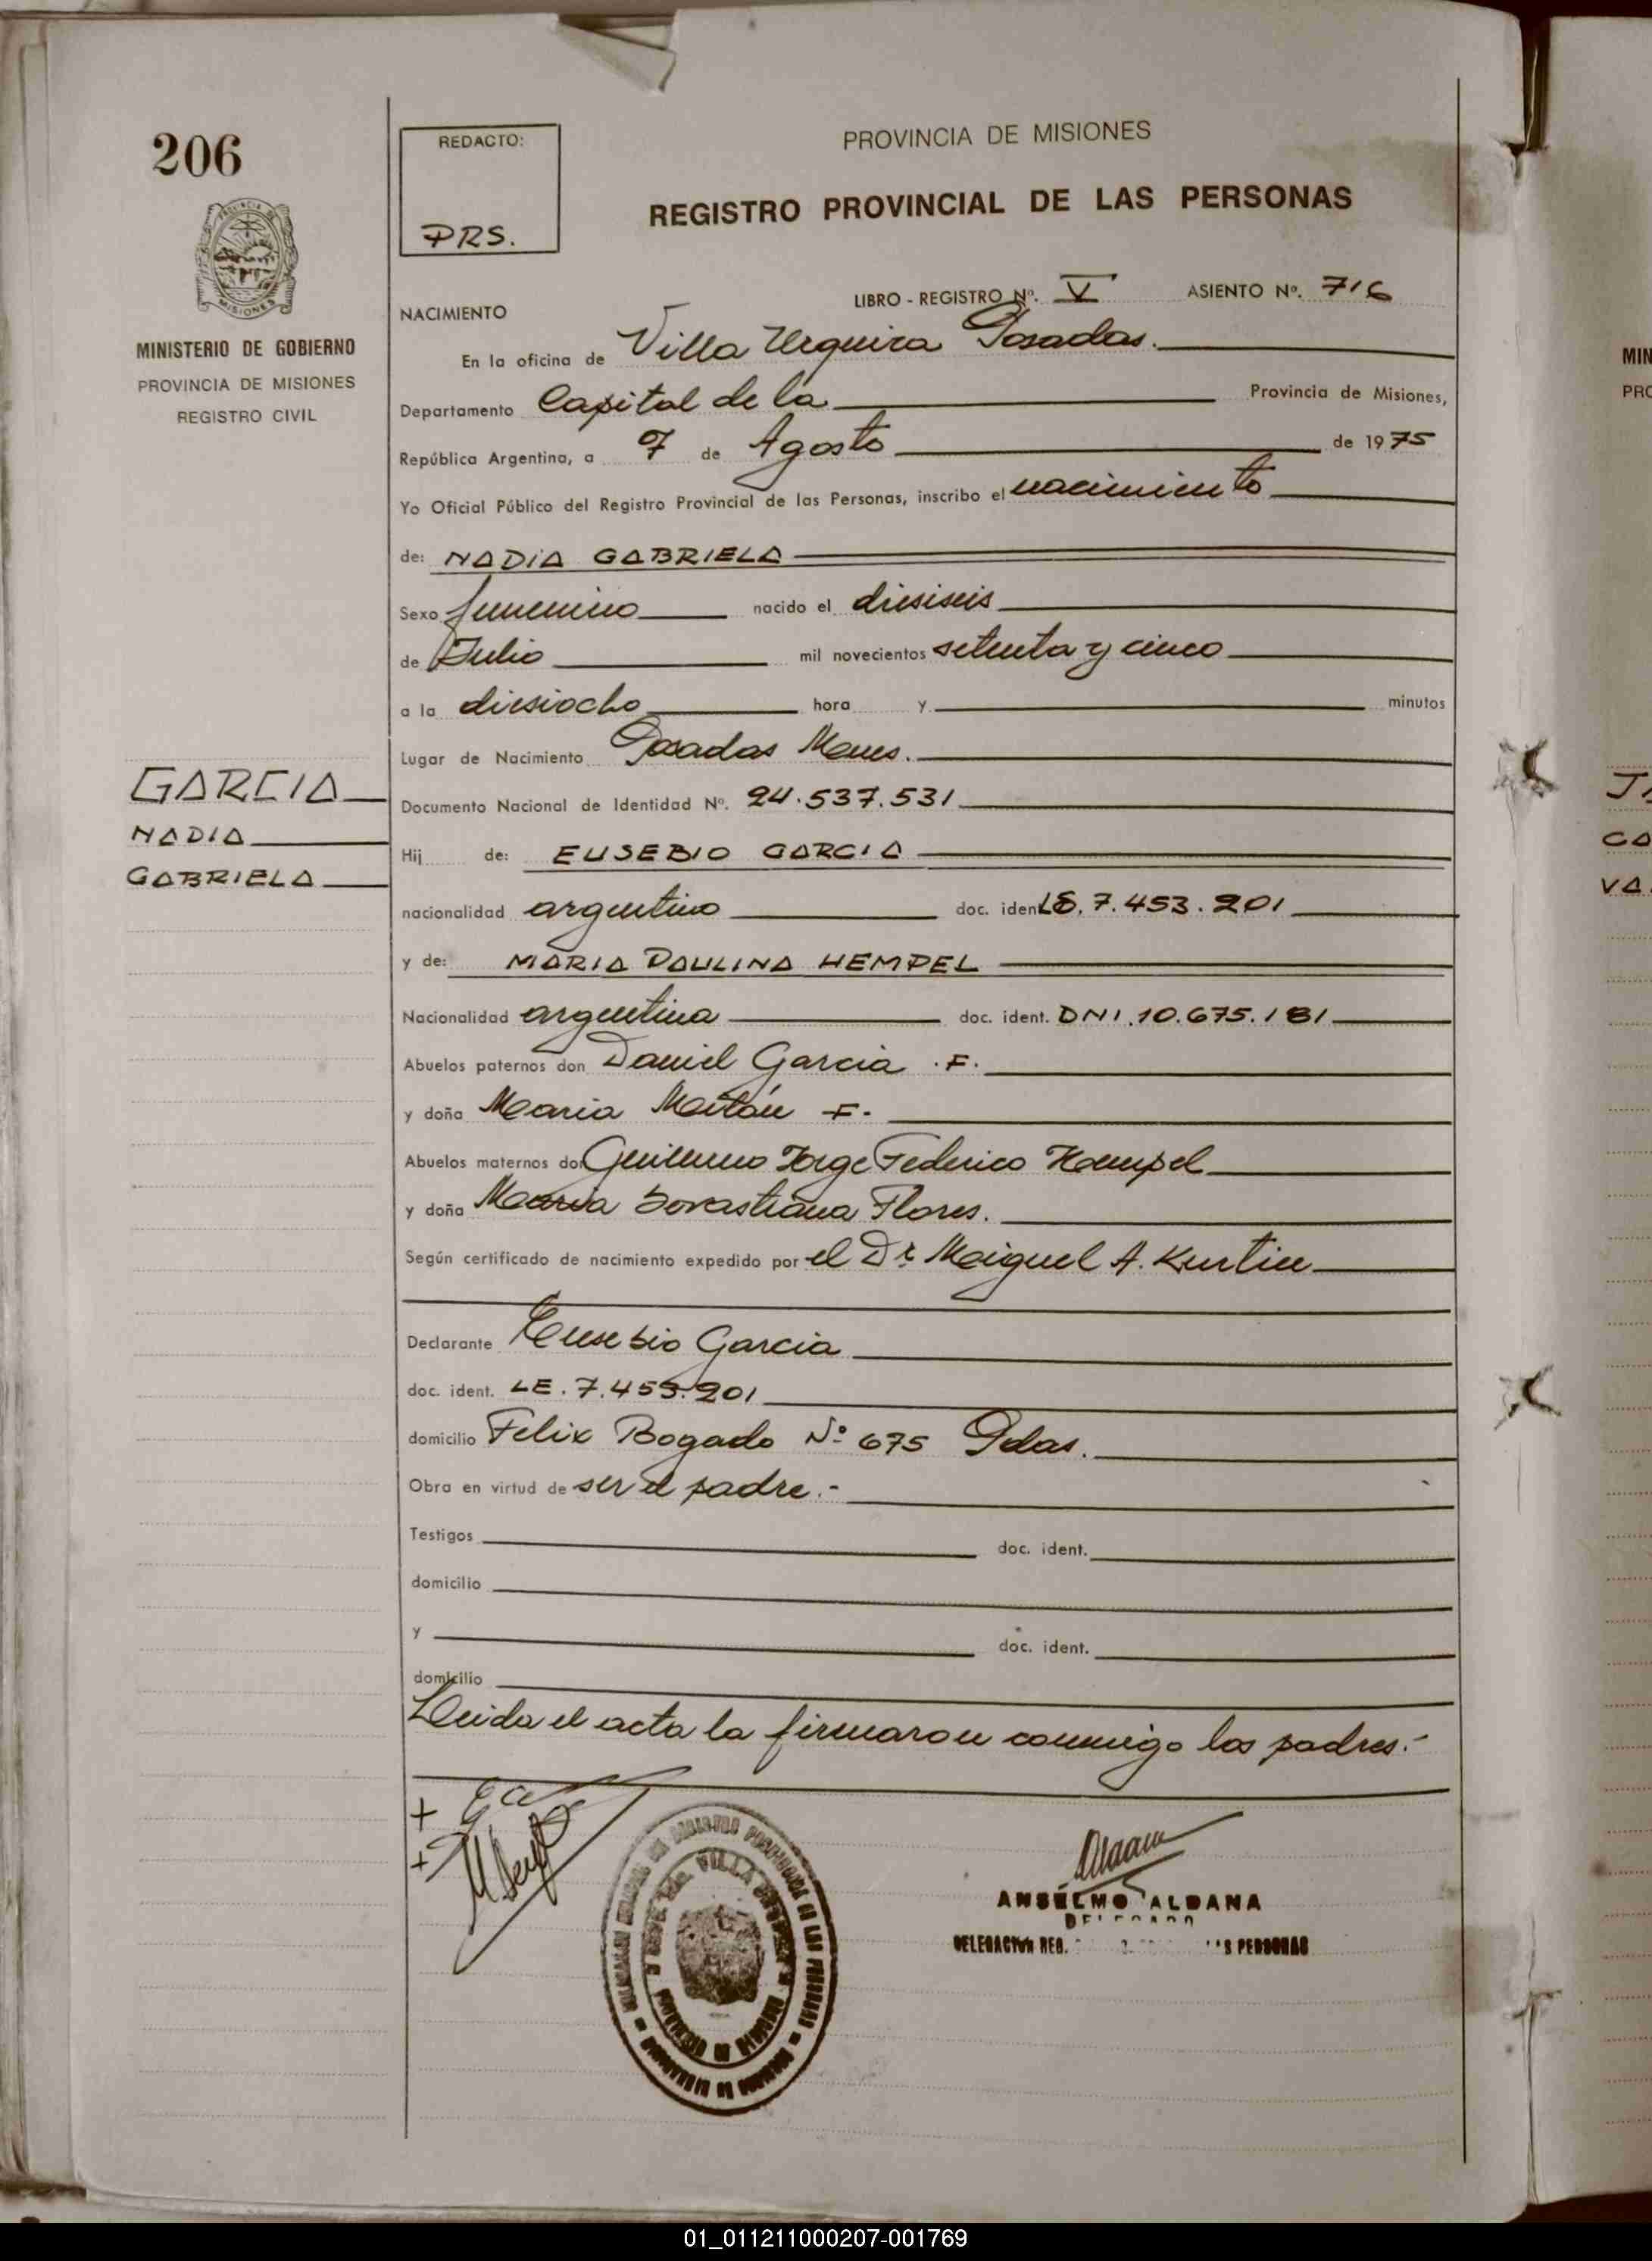 206
REDACTO:
PRS.
PROVINCIA DE MISIONES
REGISTRO PROVINCIAL DE LAS PERSONAS
MINISTERIO DE GOBIERNO
PROVINCIA DE MISIONES
REGISTRO CIVIL
LIBRO - REGISTRO Nº. V ASIENTO Nº. 716
NACIMIENTO
En la oficina de Villa Urquiza Posadas.
Departamento Capital de la Provincia de Misiones,
República Argentina, a 7 de Agosto de 1975
Yo Oficial Público del Registro Provincial de las Personas, inscribo el nacimiento
de: NADIA GABRIELA
Sexo femenino nacido el diesiseis
de Julio mil novecientos setenta y cinco
a la diesiocho hora y minutos
Lugar de Nacimiento Posadas Mnes.
GARCIA
NADIA
GABRIELA
Documento Nacional de Identidad Nº. 24.537.531
Hij de: EUSEBIO GARCIA
nacionalidad argentino doc. ident. LE. 7.453.201
y de: MARIA PAULINA HEMPEL
Nacionalidad argentina doc. ident. DNI. 10.675.181
Abuelos paternos don Daniel Garcia .F.
y doña Maria F.
Abuelos maternos don Guillermo Jorge Federico Hempel
y doña Maria Flores.
Según certificado de nacimiento expedido por el Dr Miguel A.
Declarante Eusebio Garcia
doc. ident. LE. 7.453.201
domicilio Felix Bogado Nº 675 Pdas.
Obra en virtud de ser el padre.-
Testigos doc. ident.
domicilio
y doc. ident.
domicilio
Leida el acta la firmaron conmigo los padres.-
ANSELMO ALDANA
DELEGADO
DELEGACION REG. PERSONAS
MIN
PRO
01_011211000207-001769